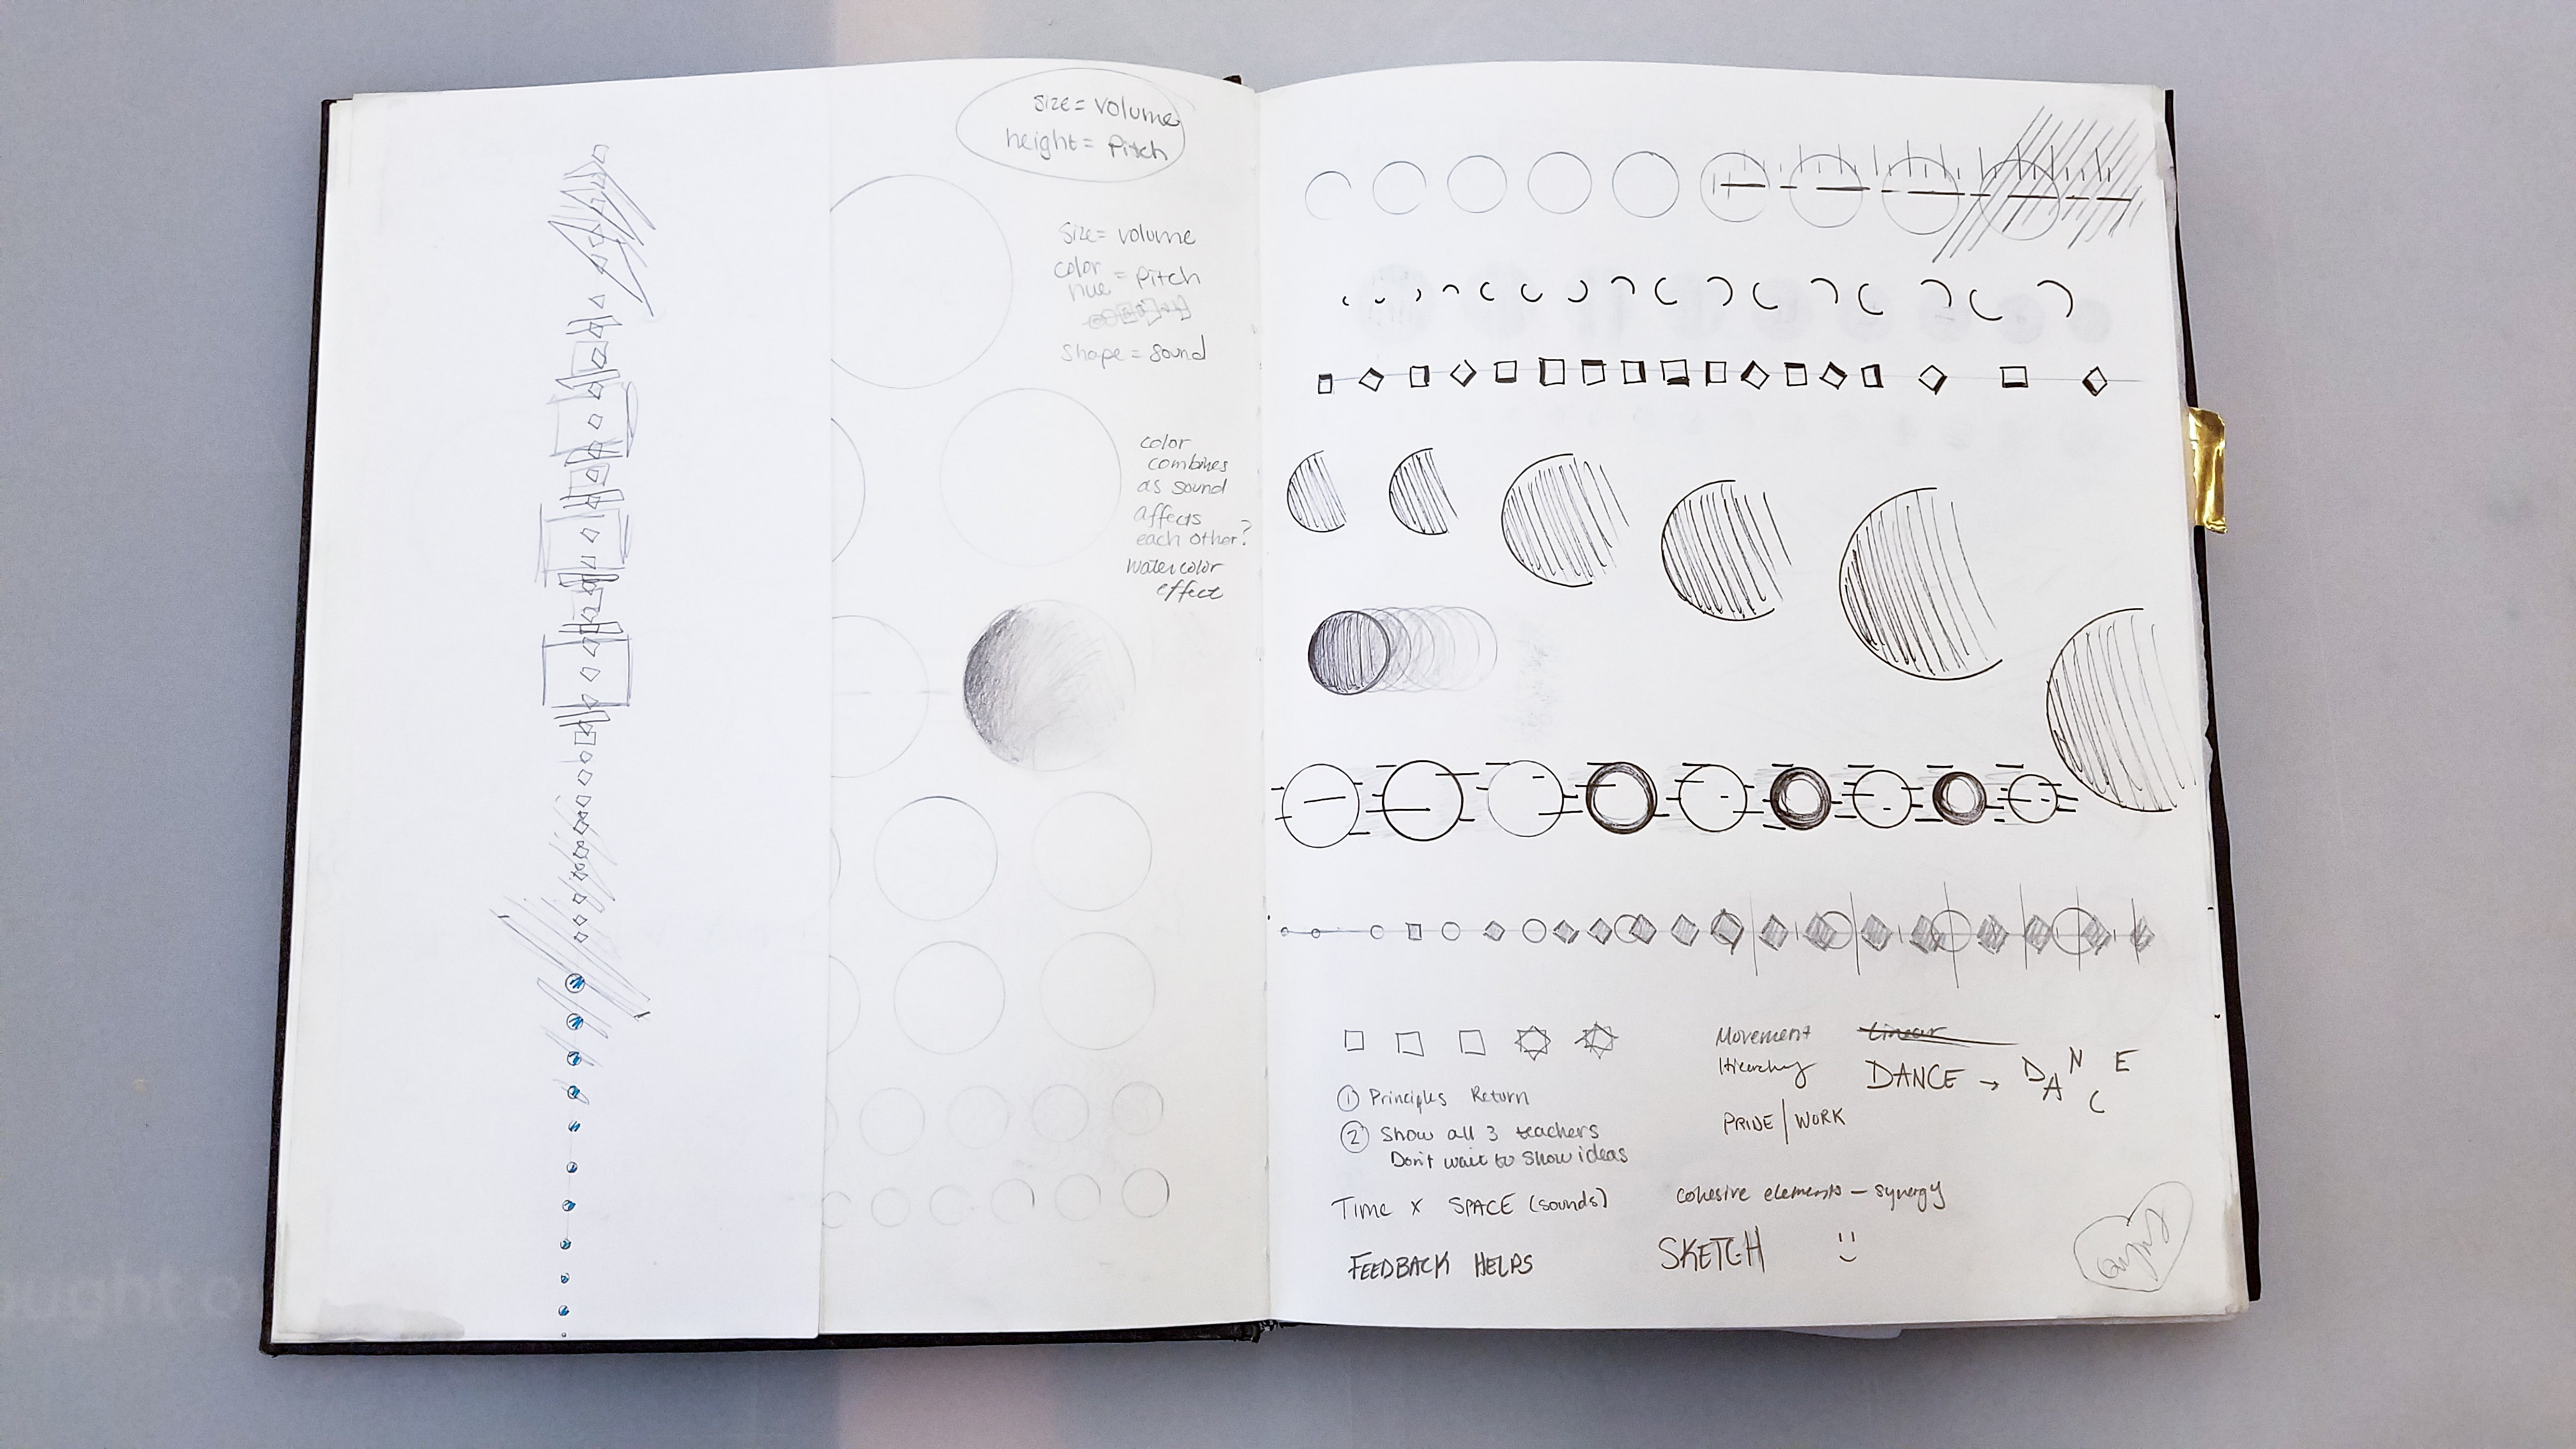 size = volume
height = Pitch
Size = volume
color
hue = Pitch
Shape = Sound
color
combines
as sound
affects
each other?
watercolor
effect
Movement Linear
Hierarchy DANCE → DANCE
① Principles Return
PRIDE | WORK
② Show all 3 teachers
Don't wait to show ideas
Time x SPACE (sounds)
cohesive elements – synergy
FEEDBACK HELPS
SKETCH
ught.o